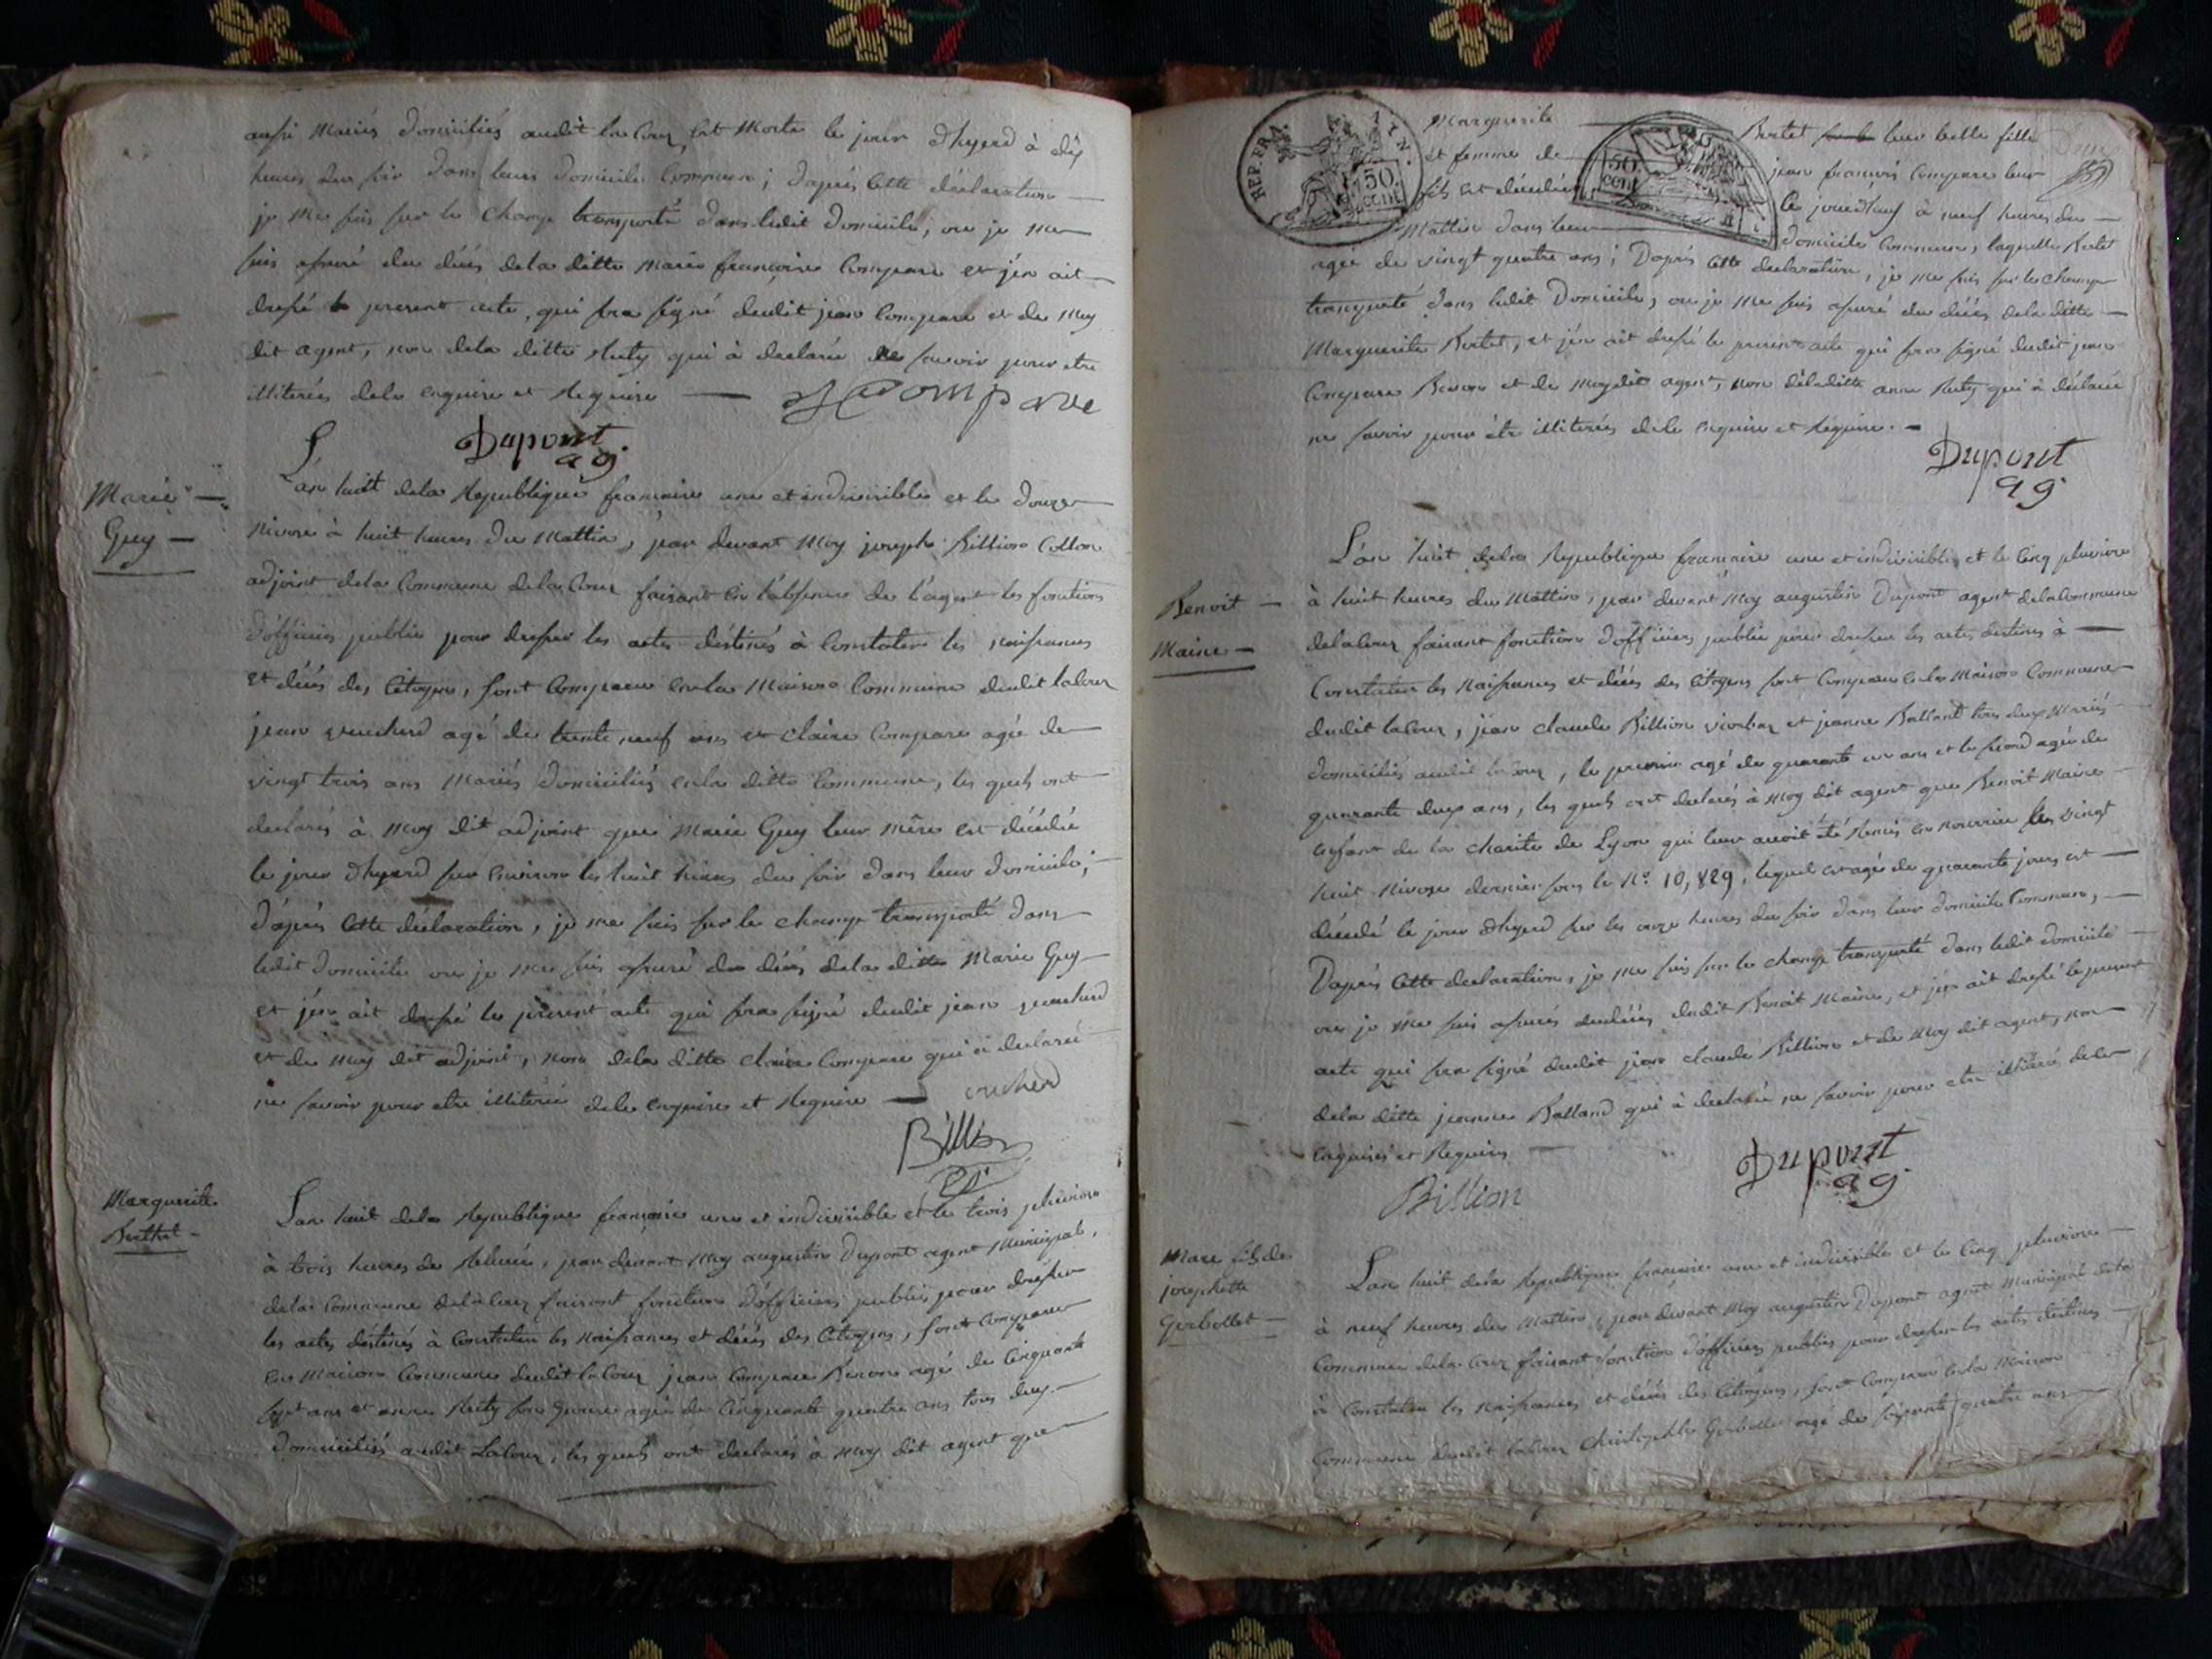 aussi Mariés domiciliés audit la Coux, est Morte le jour d'hyerd à dix
heures du soir dans leurs domicile Commun ; daprés Cette déclaration
je me suis sur le champ transporté dans ledit domicile, ou je me
suis assuré du décés dela ditte Marie françoise Compare et j'en ait
dressé le present acte, qui sera signé dudit jean Compare et de moy
dit agent, non dela ditte Ruty qui à declarée ne savoir pour etre
illiterée dela enquise et Requise
Compare
Dupont
ag
Marie
Guy
L'an huit dela Republique française une et indivisible et le douze
Nivose à huit heures du Mattin, par devant Moy joseph Billion Collon
adjoint dela Commune dela Coux faisant en l'absence de l'agent les fonctions
d'officier public pour dresser les actes déstinés à Constater les naissances
et décés des Citoyens, sont Comparu en la Maison Commune dudit laCoux
jean vuicherd agé de trente neuf ans et Claire Compare agée de
vingt trois ans Mariés domiciliés en la ditte Commune, les quels ont
declarés à moy dit adjoint que Marie Guy leur Mére est décédée
le jour d'hyerd sur environ les huit heures du soir dans leur domicile ;
d'aprés Cette déclaration, je me suis sur le champ transporté dans
ledit domicile ou je me suis assuré du décés dela ditte Marie Guy
et j'en ait dressé le present acte qui sera signé dudit jean vuicherd
et de moy dit adjoint, non dela ditte Claire Compare qui à declarée
ne savoir pour etre illiterée dela enquise et Requise
Billion
Marguerite
Berthet
L'an huit dela Republique française une et indivisible et le trois pluviose
à trois heures de Relevée, par devant moy augustin Dupont agent Municipal,
dela Commune dela Coux faisant fonction d'officier public pour dresser
les actes déstinés à Constater les naissances et décés des Citoyens, sont Comparu
en Maison Commune dudit laCoux jean Compare Benon agé de Cinquante
sept ans et anne Ruty son epouse agée de Cinquante quatre ans tous deux
domiciliés audit LaCoux, les quels ont declarés à moy dit agent que
REP. FRA.
50
cent
50
cent
Marguerite Bertet leur belle fille
et femme de jean françois Compare leur
fils est décédée le jourd'huy à neuf heures du
Mattin dans leur domicile Commun, laquelle Bertet
agée de vingt quatre ans ; Daprés Cette declaration, je me suis sur le champ
transporté dans ledit Domicile, ou je me suis assuré du décés dela ditte
Marguerite Bertet, et j'en ait dressé le present acte qui sera signé dudit jean
Compare Benon et de moy dit agent, non deladitte anne Ruty qui à déclarée
ne savoir pour étre illiterée dela enquise et Requise.
Dupont
ag
Benoit
Maine
L'an huit dela Republique française une et indivisible, et le Cinq pluviose
à huit heures du Mattin, par devant Moy augustin Dupont agent dela Commune
dela Coux faisant fonction d'officier public pour dresser les actes destinés à
Constater les Naissances et décés des Citoyens sont Comparu en la Maison Commune
dudit laCoux, jean claude Billion et jeanne Balland tous deux Mariés
domiciliés audit laCoux, le premier agé de quarante un ans et la second agée de
quarante deux ans, les quels ont declarés à moy dit agent que Benoit Maine
enfant de la charite de Lyon qui leur avoit été Remis en nourrice le vingt
huit Nivose dernier sous le N.o 10,829, lequel est agé de quarante jours est
décédé le jour d'hyerd sur les onze heures du soir dans leur domicile Commun,
Daprés Cette declaration, je me suis sur le champ transporté dans ledit domicile
ou je me suis assurés dudécés dudit Benoit Maine, et j'en ait dressé le present
acte qui sera signé dudit jean claude Billion et de Moy dit agent, non
dela ditte jeanne Balland qui à declarée ne savoir pour etre illiterée dela
enquise et Requise
Dupont
ag
Billion
Marc fils de
josephette
Gerbollet
L'an huit dela Republique française une et indivisible et le Cinq pluviose
à neuf heures du Mattin, par devant Moy augustin Dupont agent Municipal dela
Commune dela Coux faisant fonction d'officier public pour dresser les actes destinés
à Constater les Naissances et décés des Citoyens, sont Comparu en la Maison
Commune dudit laCoux Christophle Gerbollet agé de soixante quatre ans